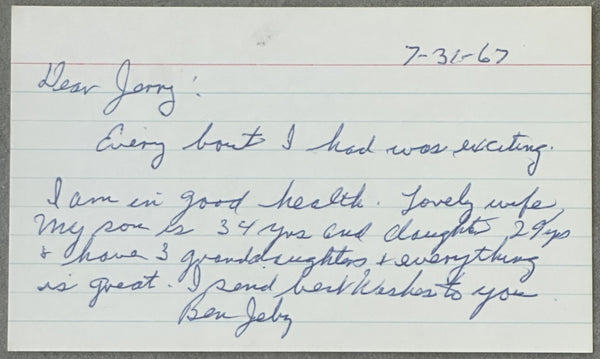 7-31-67
Dear Jerry!
Every bout I had was exciting.
I am in good health. Lovely wife,
My son is 34 yrs and daughter 29 yrs
& have 3 granddaughters & everything
is great. I send best wishes to you
Ben Jeby